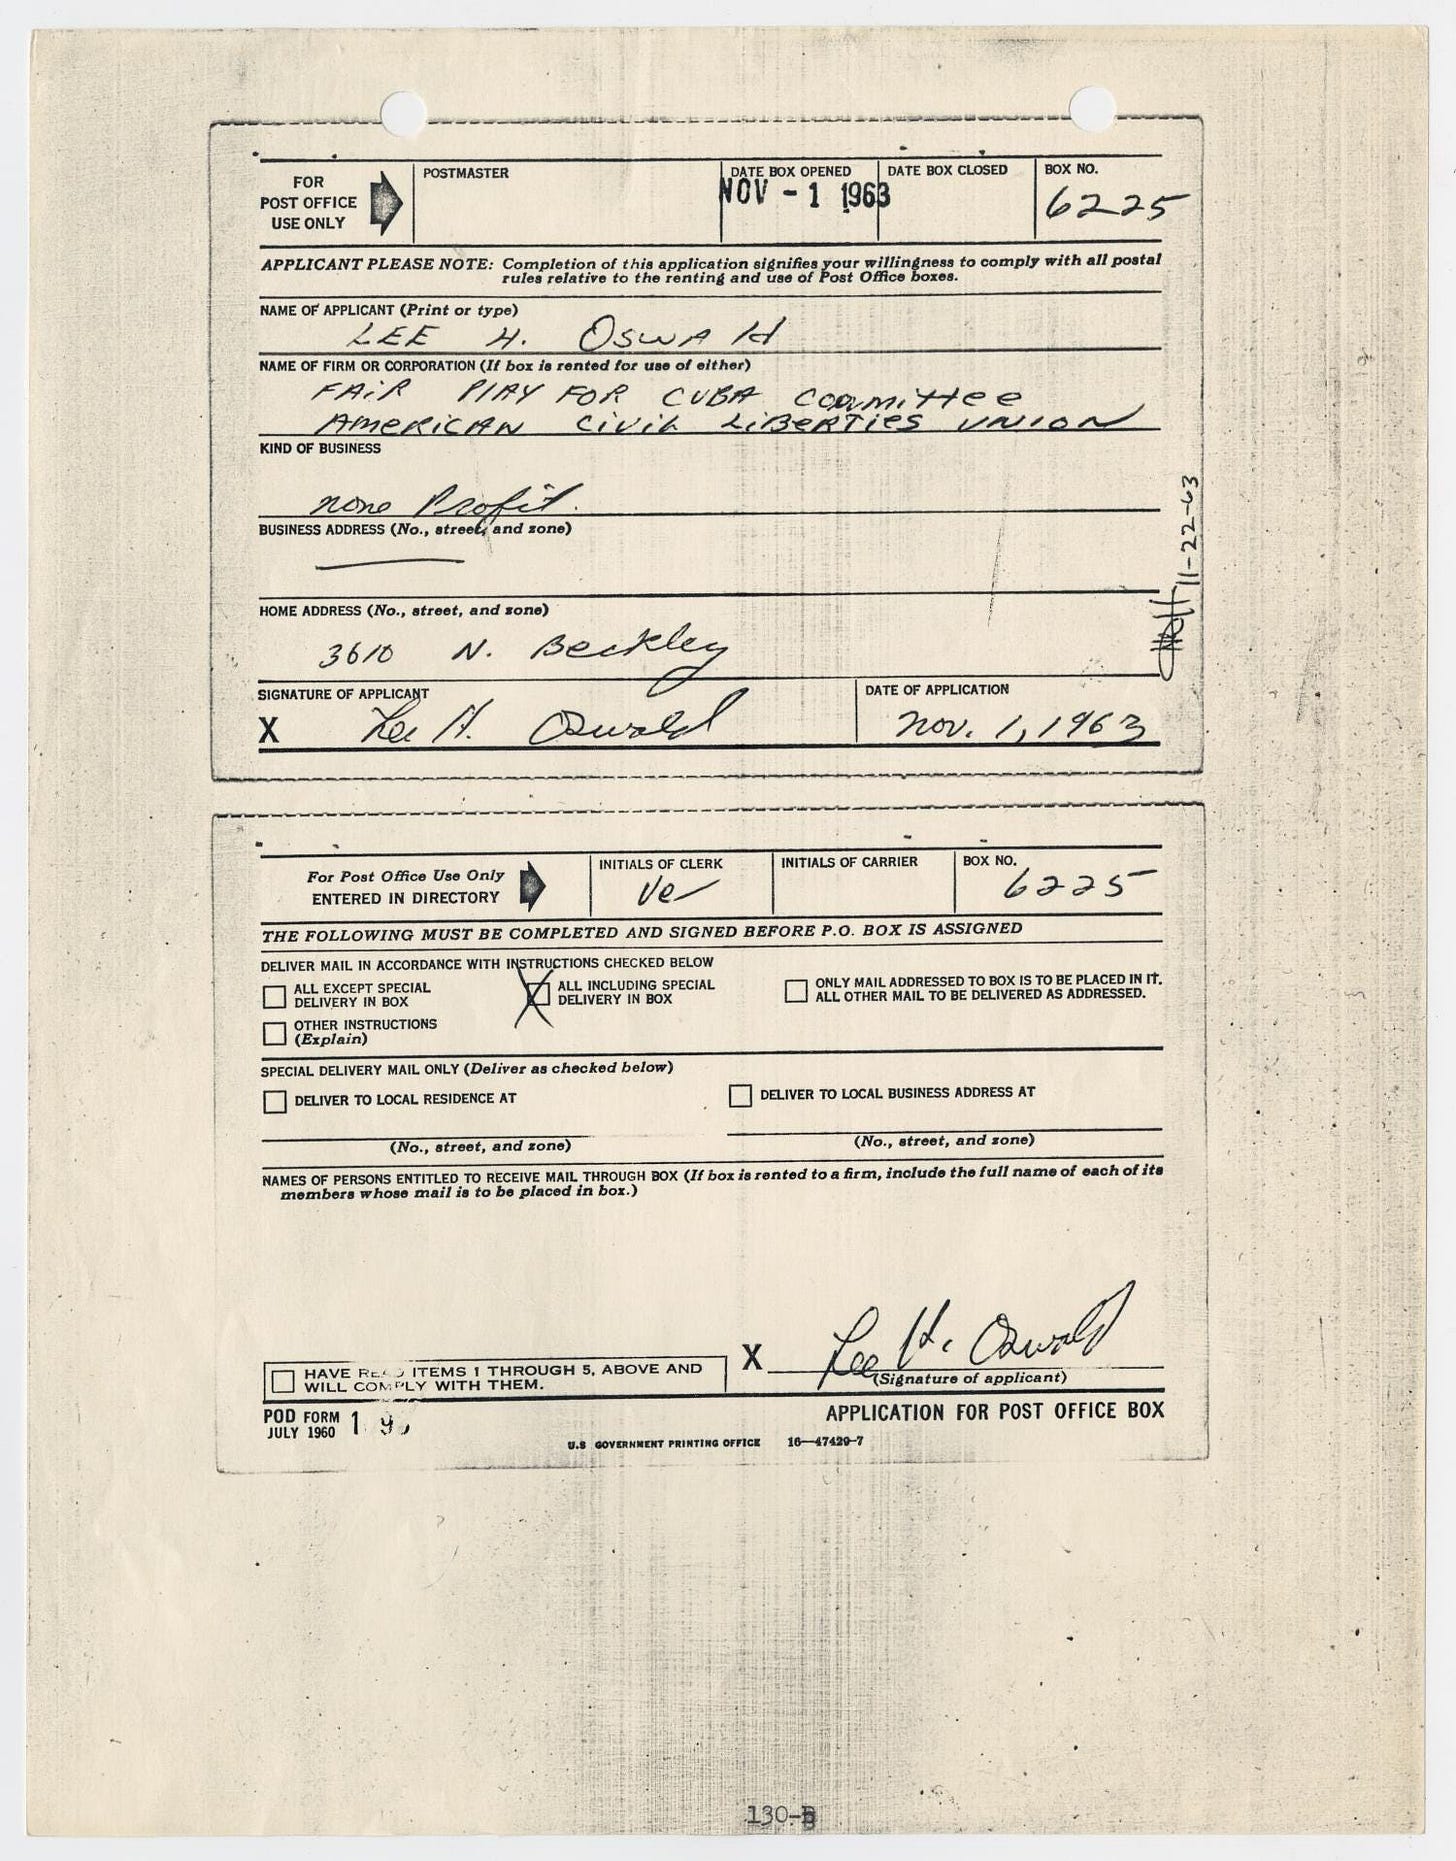 FOR
POST OFFICE
USE ONLY
POSTMASTER
DATE BOX OPENED
NOV - 1 1963
DATE BOX CLOSED
BOX NO.
6225
APPLICANT PLEASE NOTE: Completion of this application signifies your willingness to comply with all postal
rules relative to the renting and use of Post Office boxes.
NAME OF APPLICANT (Print or type)
LEE H. OSWAld
NAME OF FIRM OR CORPORATION (If box is rented for use of either)
FAiR PlAY FOR CUBA Committee
AMERiCAN CiViL LiBERTiES UNiON
KIND OF BUSINESS
none Profit.
BUSINESS ADDRESS (No., street, and zone)
HOME ADDRESS (No., street, and zone)
3610 N. Beckley
SIGNATURE OF APPLICANT
X Lee H. Oswald
DATE OF APPLICATION
Nov. 1, 1963
11-22-63
For Post Office Use Only
ENTERED IN DIRECTORY
INITIALS OF CLERK
INITIALS OF CARRIER
BOX NO.
6225
THE FOLLOWING MUST BE COMPLETED AND SIGNED BEFORE P.O. BOX IS ASSIGNED
DELIVER MAIL IN ACCORDANCE WITH INSTRUCTIONS CHECKED BELOW
ALL EXCEPT SPECIAL
DELIVERY IN BOX
X ALL INCLUDING SPECIAL
DELIVERY IN BOX
ONLY MAIL ADDRESSED TO BOX IS TO BE PLACED IN IT.
ALL OTHER MAIL TO BE DELIVERED AS ADDRESSED.
OTHER INSTRUCTIONS
(Explain)
SPECIAL DELIVERY MAIL ONLY (Deliver as checked below)
DELIVER TO LOCAL RESIDENCE AT
DELIVER TO LOCAL BUSINESS ADDRESS AT
(No., street, and zone)
(No., street, and zone)
NAMES OF PERSONS ENTITLED TO RECEIVE MAIL THROUGH BOX (If box is rented to a firm, include the full name of each of its
members whose mail is to be placed in box.)
X Lee H. Oswald
(Signature of applicant)
HAVE READ ITEMS 1 THROUGH 5, ABOVE AND
WILL COMPLY WITH THEM.
POD FORM
JULY 1960
APPLICATION FOR POST OFFICE BOX
U.S GOVERNMENT PRINTING OFFICE 16—47429-7
130-B